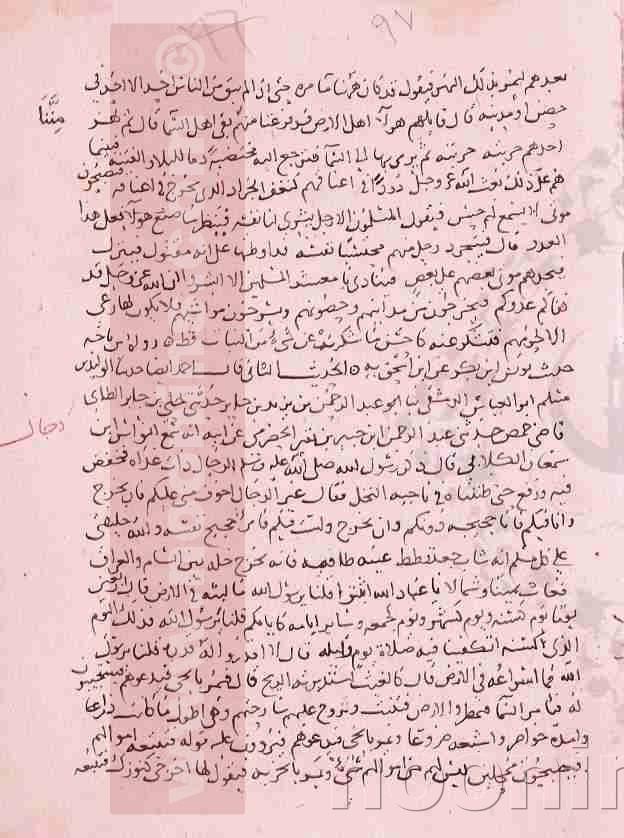 ٩٧
بعدهم ليمر بذلك النهر فيقول قد كان ههنا ماء مره حتى اذا لم يبق من الناس احد الا احد في
حصن او مدينه قال قايلهم هولاء اهل الارض قد فرغنا منهم بقي اهل السما قال ثم يهز
احدهم حربته ثم يرمي بها الى السما فترجع اليه مختضبة دما للبلاء والفتنه فبينما
هم على ذلك بعث الله عز وجل دودا في اعناقهم كنغف الجراد الذي يخرج في اعناقه فيصبحون
موتى لا يسمع لهم حس فيقول المسلمون الا رجل يشري لنا نفسه فينظر ما صنع هولاء فعل هذا
العدو قال فيتجرد رجل منهم محتسبا نفسه قد اوطنها على انه مقتول فينزل
فيجدهم موتى بعضهم على بعض فينادي يا معشر المسلمين الا ابشروا ان الله عز وجل قد
كفاكم عدوكم فيخرجون من مداينهم وحصونهم ويسرحون مواشيهم فلا يكون لها رعي
الا لحومهم فتشكر عنه كاحسن ما شكرت عن شي من النبات قط
حديث يونس ابن بكير عن ابن اسحق به الحديث الثاني قال احمد ايضا حدثنا الوليد بن
مسلم ابو العباس الدمشقي ثنا ابو عبد الرحمن بن يزيد بن جابر حدثني يحيى بن جابر الطاي
قاضي حمص حدثني عبد الرحمن ابن جبير بن نفير الحضرمي عن ابيه انه سمع النواس بن
سمعان الكلابي قال ذكر رسول الله صلى الله عليه وسلم الدجال ذات غداه فخفض
فيه ورفع حتى ظنناه في ناحيه النخل فقال غير الدجال اخوف مني عليكم فان يخرج
وانا فيكم فانا حجيجه دونكم وان يخرج ولست فيكم فامرؤ حجيج نفسه والله خليفتي
على كل مسلم انه شاب جعد قطط عينه طافيه فانه يخرج خله بين الشام والعراق
فعاث يمينا وشمالا يا عباد الله اثبتوا قلنا يرسول الله ما لبثه في الارض قال اربعين
يوما يوم كسنه ويوم كشهر ويوم كجمعه وساير ايامه كايامكم قلنا يرسول الله فذلك اليوم
الذي كسنه اتكفينا فيه صلاة يوم وليله قال لا اقدروا له قدره قلنا يرسول
الله فما اسراعه في الارض قال كالغيث استدبرته الريح قال فيمر بالحي فيدعوهم فيستجيبون
له فيامر السما فتمطر والارض فتنبت وتروح عليهم سارحتهم وهي اطول ما كانت ذرا
وامده خواصر واسبعه ضروعا ويمر بالحي فيدعوهم فيردون عليه قوله فتتبعه اموالهم
فيصبحون ممحلين ليس لهم من اموالهم شي ويمر بالخربه فيقول لها اخرجي كنوزك فتتبعه
دجال